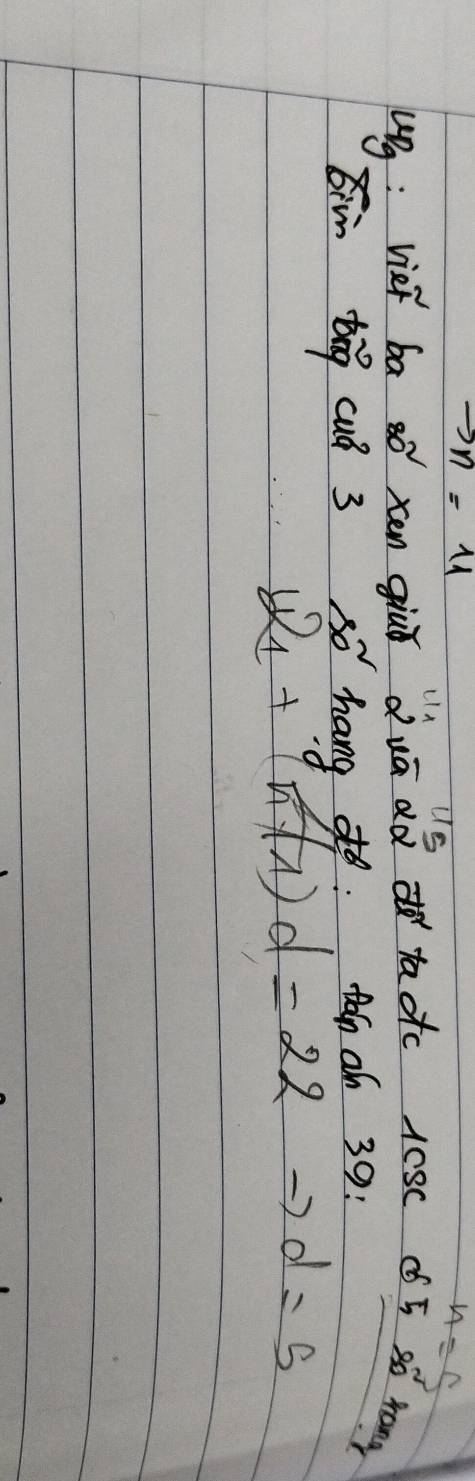 → n = 11
Viết ba số xen giữa 2 và 22 để ta đc 1 CSC có 5 số hạng
u1 u5
n = 5
Tìm tổng của 3 số hạng đó. đáp án 39:
u1 + (n-1)d = 22 → d = 5